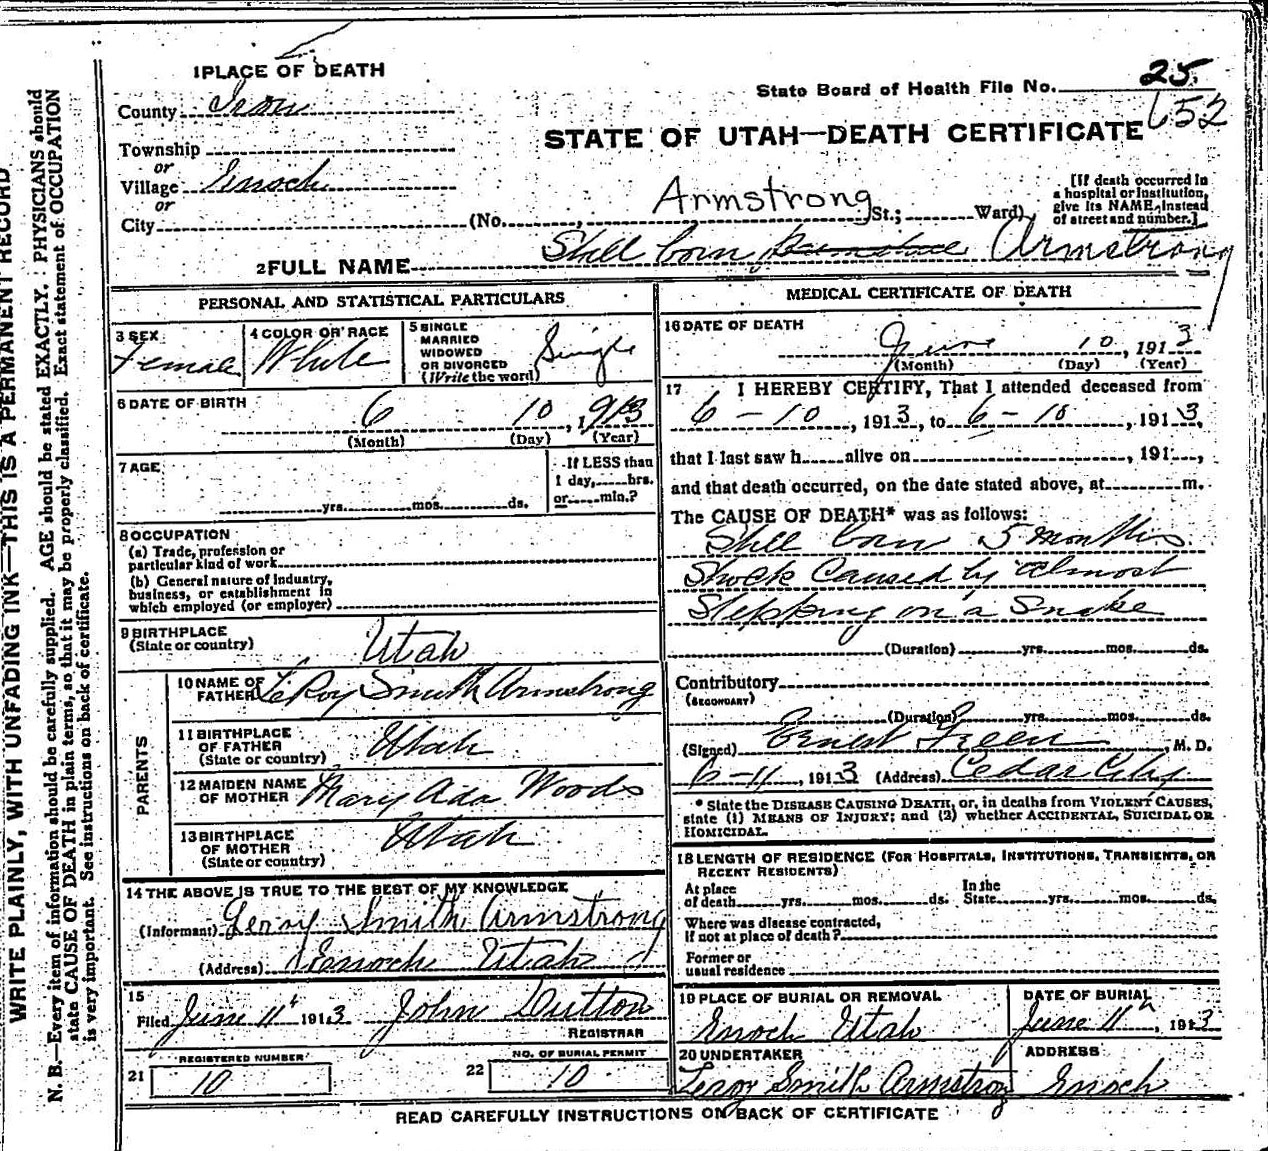 WRITE PLAINLY, WITH UNFADING INK—THIS IS A PERMANENT RECORD
N. B.—Every item of information should be carefully supplied. AGE should be stated EXACTLY. PHYSICIANS should
state CAUSE OF DEATH in plain terms, so that it may be properly classified. Exact statement of OCCUPATION
is very important. See instructions on back of certificate.
1 PLACE OF DEATH
State Board of Health File No. 25.
652
County Iron
STATE OF UTAH—DEATH CERTIFICATE
Township
or
Village Enoch
or
City (No. Armstrong St.; Ward)
[If death occurred in
a hospital or institution,
give its NAME instead
of street and number.]
2 FULL NAME Still born Armstrong
PERSONAL AND STATISTICAL PARTICULARS
3 SEX
Female
4 COLOR OR RACE
White
5 SINGLE
MARRIED
WIDOWED
OR DIVORCED
(Write the word)
Single
6 DATE OF BIRTH
6 10, 1913
(Month) (Day) (Year)
7 AGE
yrs. mos. ds.
If LESS than
1 day, hrs.
or min.?
8 OCCUPATION
(a) Trade, profession or
particular kind of work
(b) General nature of industry,
business, or establishment in
which employed (or employer)
9 BIRTHPLACE
(State or country)
Utah
PARENTS
10 NAME OF
FATHER LeRoy Smith Armstrong
11 BIRTHPLACE
OF FATHER
(State or country)
Utah
12 MAIDEN NAME
OF MOTHER Mary Ada Woods
13 BIRTHPLACE
OF MOTHER
(State or country)
Utah
14 THE ABOVE IS TRUE TO THE BEST OF MY KNOWLEDGE
(Informant) Leroy Smith Armstrong
(Address) Enoch Utah
15
Filed June 11th 1913 John Dutton
REGISTRAR
REGISTERED NUMBER
21 10
NO. OF BURIAL PERMIT
22 10
MEDICAL CERTIFICATE OF DEATH
16 DATE OF DEATH
June 10, 1913
(Month) (Day) (Year)
17 I HEREBY CERTIFY, That I attended deceased from
6-10, 1913, to 6-10, 1913,
that I last saw h alive on , 191 ,
and that death occurred, on the date stated above, at m.
The CAUSE OF DEATH* was as follows:
Still born 5 months
Shock Caused by almost
Stepping on a Snake
(Duration) yrs. mos. ds.
Contributory
(SECONDARY)
(Duration) yrs. mos. ds.
(Signed) Ernest Green, M. D.
6-11, 1913 (Address) Cedar City
* State the DISEASE CAUSING DEATH, or, in deaths from VIOLENT CAUSES,
state (1) MEANS OF INJURY; and (2) whether ACCIDENTAL, SUICIDAL OR
HOMICIDAL.
18 LENGTH OF RESIDENCE (FOR HOSPITALS, INSTITUTIONS, TRANSIENTS, OR
RECENT RESIDENTS)
At place
of death yrs. mos. ds.
In the
State yrs. mos. ds.
Where was disease contracted,
if not at place of death?
Former or
usual residence
19 PLACE OF BURIAL OR REMOVAL
Enoch Utah
DATE OF BURIAL
June 11th, 1913
20 UNDERTAKER
Leroy Smith Armstrong
ADDRESS
Enoch
READ CAREFULLY INSTRUCTIONS ON BACK OF CERTIFICATE